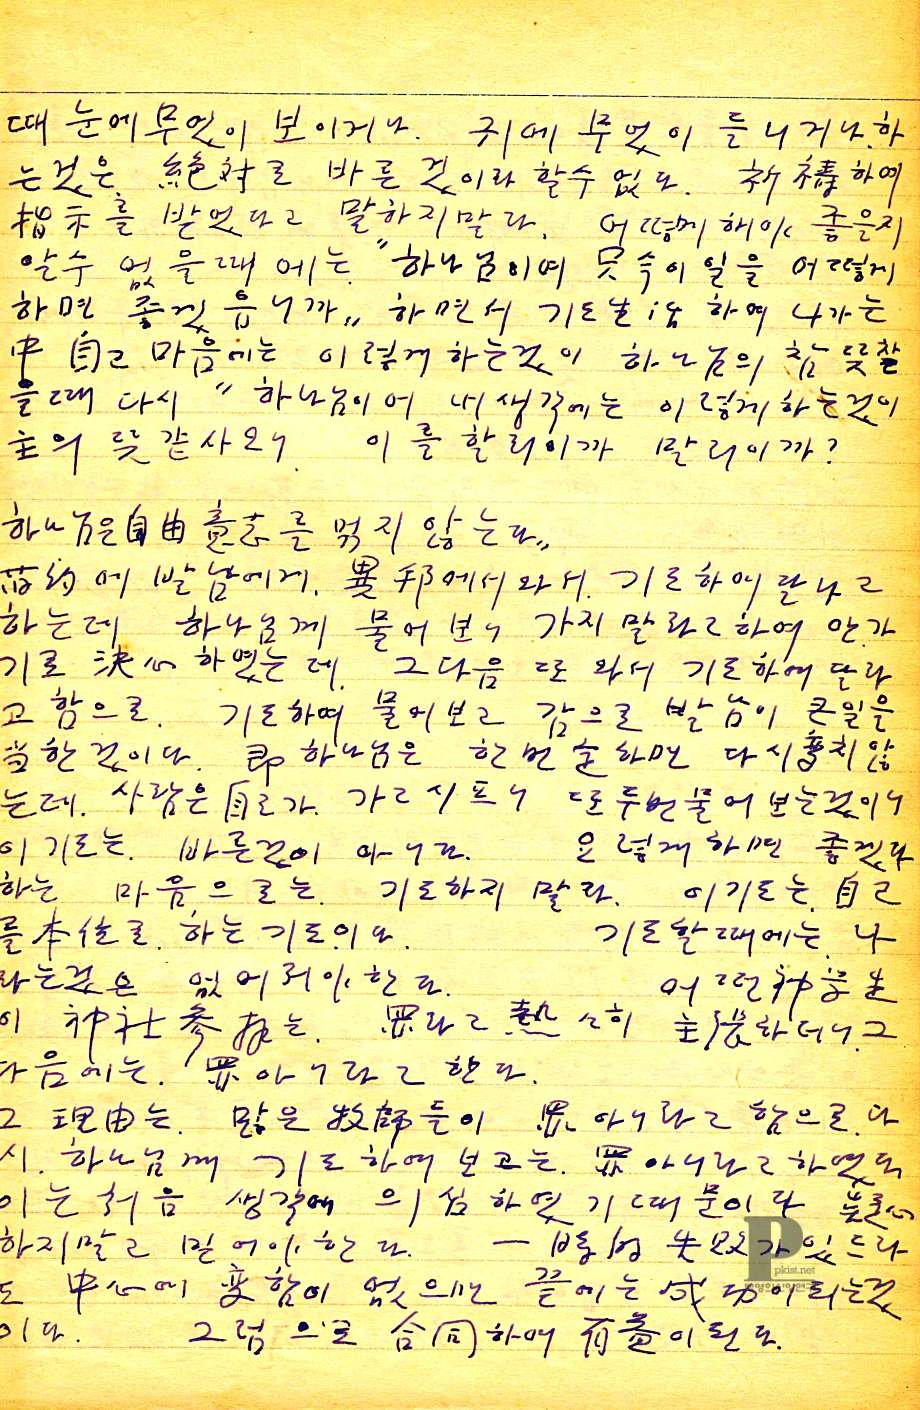 때 눈에 무엇이 보이거나. 귀에 무엇이 들니거나, 하
는것은. 絶対로 바른 것이라 할수 없다. 祈禱하여
指示를 받었다고 말하지말라. 어떻게 해야 좋을지
알수 없을때에는 "하나님이여 못 속이 일을 어떻게
하면 좋겠읍니까" 하면서 기도보 하여 나가는
中 自己 마음에는 이렇게 하는것이 하나님의 참 뜻할
을때 다시 "하나님이여 내 생각에는 이렇게 하는것이
主의 뜻같사오니. 이를 할리이까 말리이까?
하나님은 自由意志를 묶지 않는다"
旧約에 발남에게. 異邦에서 와서. 기도하여달나고
하는데 하나님께 물어보니 가지 말라고하여 안가
기로 決心하였는데. 그다음 또 와서 기도하여 달라
고 함으로. 기도하여 물어보고 감으로 발남이 큰일을
当한것이다. 即 하나님은 한번 하면 다시 変치 않
는데. 사람은 自己가. 가고 시프니 또 두번 물어 보는것이니
이 기도는. 바른것이 아니다. 요렇게 하면 좋겠다
하는 마음으로는. 기도하지 말라. 이 기도는. 自己
를 本位로. 하는 기도이다. 기도할때에는. 나
라는것은 없어져야 한다. 어떤 神学生
이 神社參拜는. 罪라고 熱々히 主張하더니. 그
다음에는. 罪 아니라고 한다.
그 理由는. 많은 牧師들이 罪 아니라고 함으로. 다
시. 하나님께 기도하여 보고는. 罪 아니라고 하였다
이는 처음 생각에 의심하였기 때문이다
하지말고 믿어야 한다. 一時的 失敗가 있드라
도 中心에 変함이 없으면 끝에는 成功이 되는것
이다. 그럼으로 合同하여 有益이 된다.
P
pkist.net